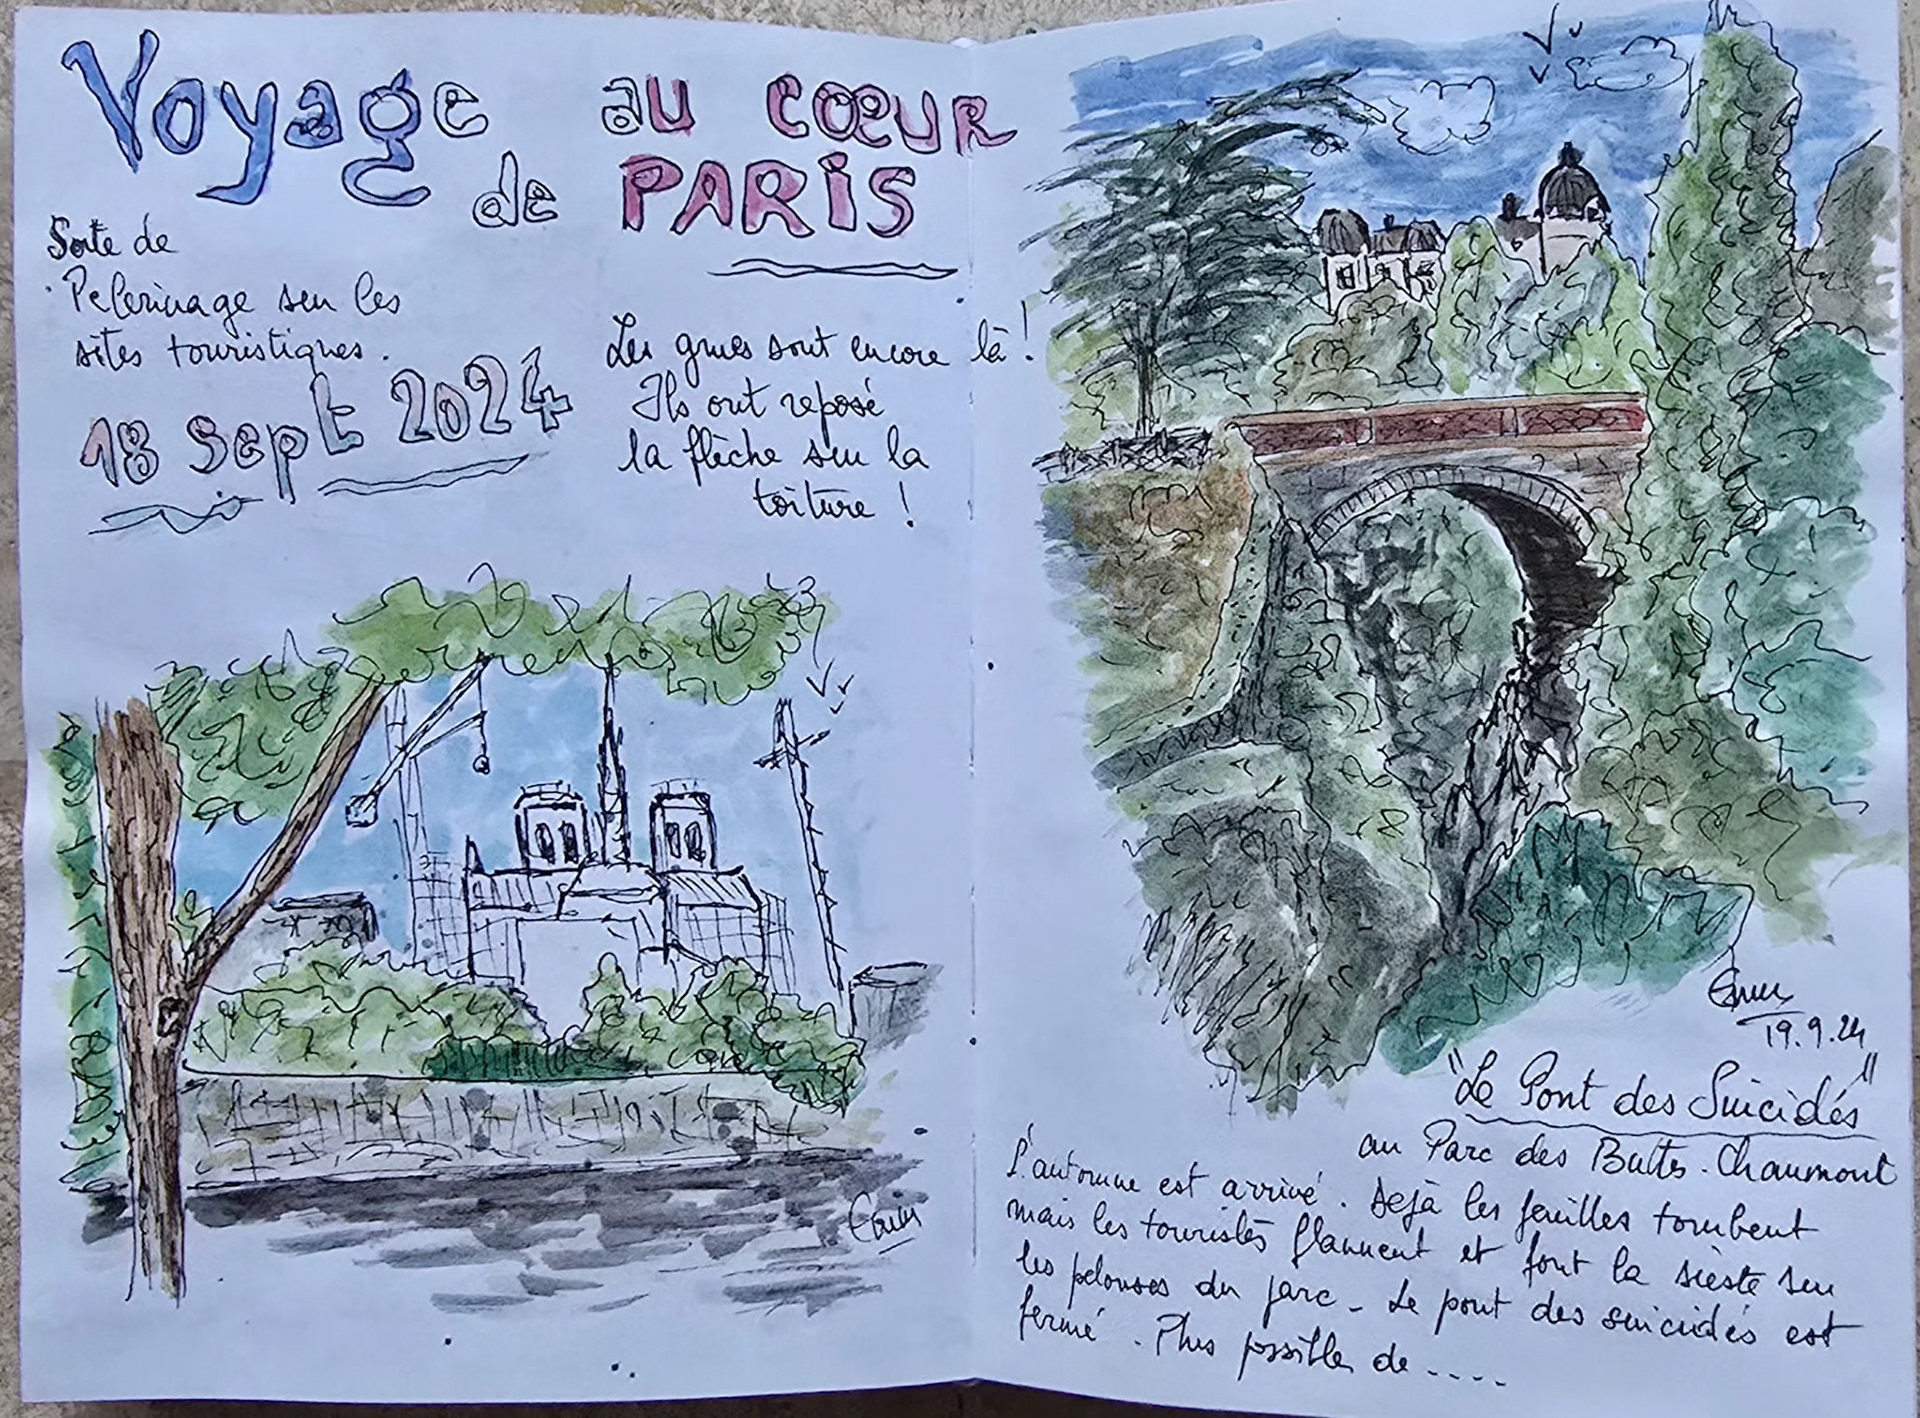 Voyage au cœur
de PARIS
Sorte de
Pelerinage sur les
sites touristiques.
18 Sept 2024
Les grues sont encore là !
Ils ont reposé
la flèche sur la
toiture !
19.9.24
"Le Pont des Suicidés"
au Parc des Buttes-Chaumont
L'automne est arrivé. Dejà les feuilles tombent
mais les touristes flannent et font la sieste sur
les pelouses du parc - Le pont des suicidés est
fermé. Plus possible de.....